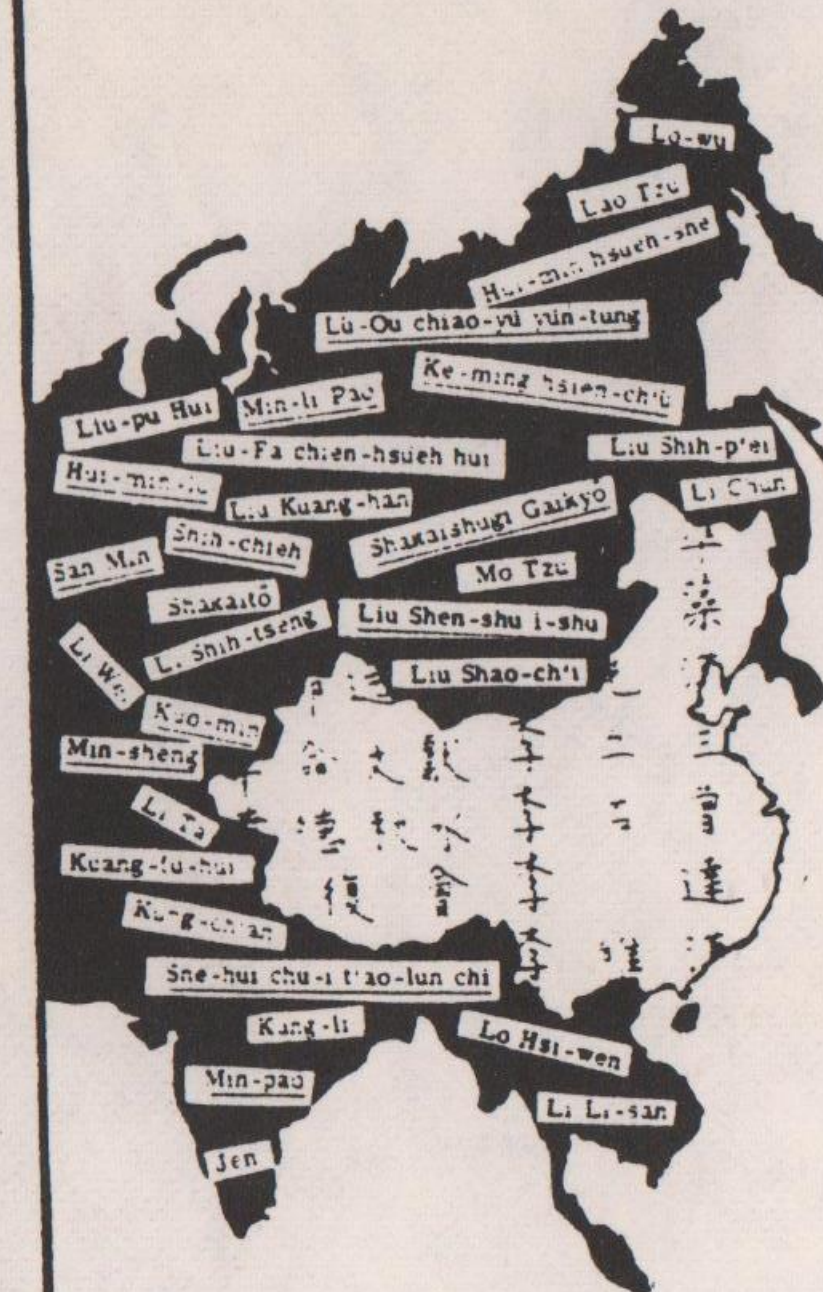 Lo-wu
Lao Tzu
Hui-min hsueh-she
Lü-Ou chiao-yü yün-tung
Ke-ming hsien-ch'ü
Liu-pu Hui
Min-li Pao
Liu-Fa chien-hsueh hui
Liu Shih-p'ei
Hui-min-lu
Liu Kuang-han
Li Chun
Shih-chieh
Shakaishugi Gaikyō
San Min
Mo Tzu
Shakaitō
Liu Shen-shu i-shu
Li Shih-tseng
Liu Shao-ch'i
Kuo-min
Min-sheng
Li Ta
Kuang-fu-hui
Kung-ch'an
She-hui chu-i t'ao-lun chi
Kang-li
Lo Hsi-wen
Min-pao
Li Li-san
Jen